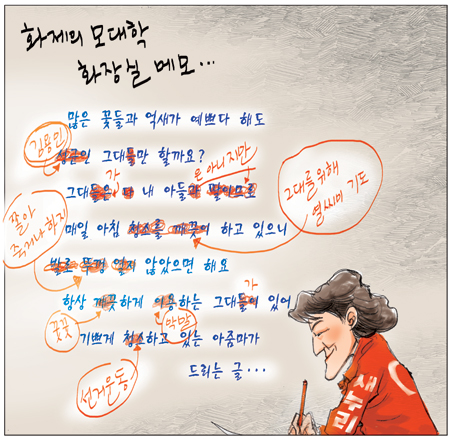 화제의 모대학
화장실 메모...
많은 꽃들과 억새가 예쁘다 해도
김용민
성균인 그대들만 할까요?
가
은 아니지만
그대들은 다 내 아들과 딸이므로
그대를 위해
열씨미 기도
매일 아침 청소를 깨끗이 하고 있으니
쫄아
죽거나 하지
발로 뚜껑 열지 않았으면 해요
가
항상 깨끗하게 이용하는 그대들이 있어
꿋꿋
막말
기쁘게 청소하고 있는 아줌마가
선거운동
드리는 글...
새누리